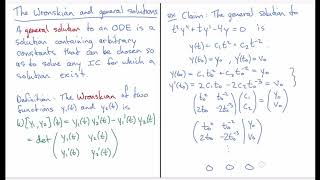 The Wronskian and general solutions
A general solution to an ODE is a
solution containing arbitrary
constants that can be chosen so
as to solve any IC for which a
solution exist.
Definition: The Wronskian of two
functions y₁(t) and y₂(t) is
W[y₁,y₂](t) = y₁(t) y₂'(t) - y₁'(t) y₂(t)
= det ( y₁(t) y₂(t)
y₁'(t) y₂'(t) )
ex Claim: The general solution to
t²y'' + ty' - 4y = 0 is
y(t) = c₁t² + c₂t⁻²
y(t₀) = c₁t₀² + c₂t₀⁻² = y₀
y'(t₀) = 2c₁t₀ - 2c₂t₀⁻³ = v₀
( t₀² t₀⁻²
2t₀ -2t₀⁻³ ) ( c₁
c₂ ) = ( y₀
v₀ )
( t₀² t₀⁻²
2t₀ -2t₀⁻³ ) ( y₀
v₀ )